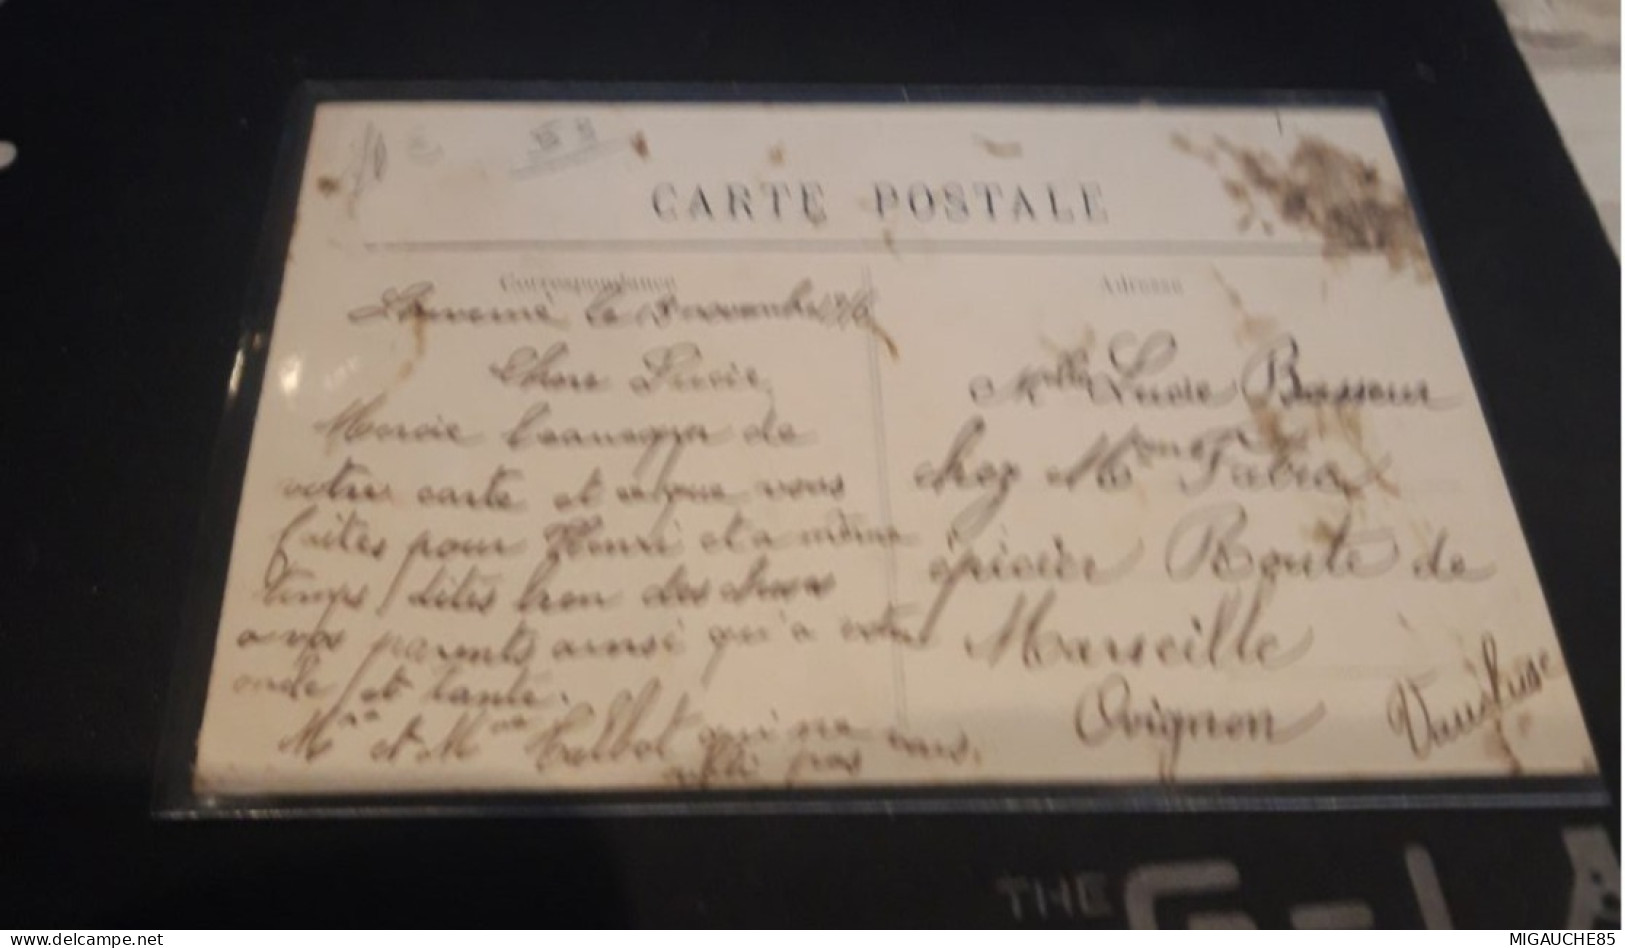 CARTE POSTALE
Correspondance
Adresse
le 13 novembre
Chere Lucie
Mercie beaucoup de
votre carte et ce que vous
faites pour Henri et a même
temps dites bien des choses
a vos parents ainsi qu'a votre
oncle et tante.
Mr et Mme Talbot qui ne vous
oubli pas
Melle Lucie Brasseur
chez Mr Fabre
épicier Route de
Marseille
Avignon
Vaucluse
THE
MIGAUCHE85